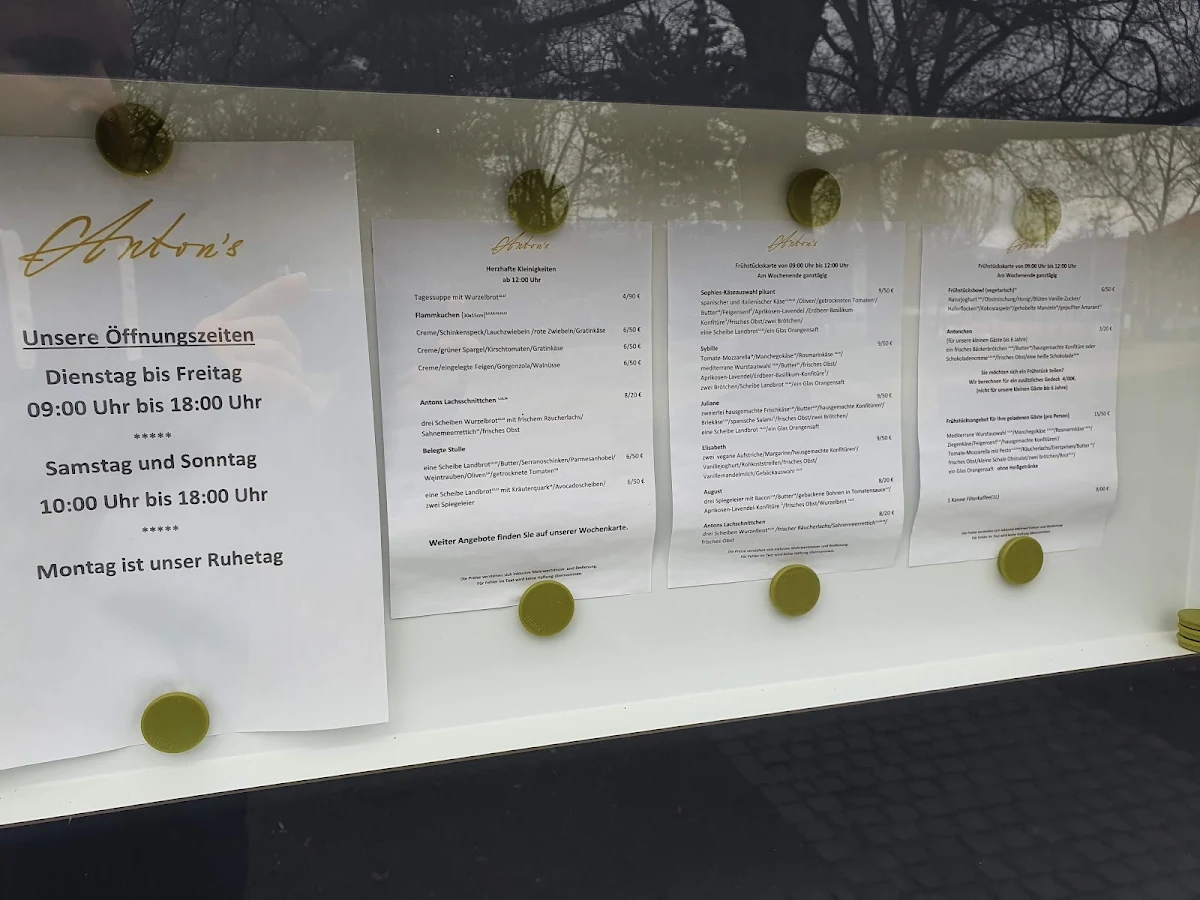 Anton's
Unsere Öffnungszeiten
Dienstag bis Freitag
09:00 Uhr bis 18:00 Uhr
*****
Samstag und Sonntag
10:00 Uhr bis 18:00 Uhr
*****
Montag ist unser Ruhetag
Anton's
Herzhafte Kleinigkeiten
ab 12:00 Uhr
Tagessuppe mit Wurzelbrot 4/90 €
Flammkuchen
Creme/Schinkenspeck/Lauchzwiebeln /rote Zwiebeln/Gratinkäse 6/50 €
Creme/grüner Spargel/Kirschtomaten/Gratinkäse 6/50 €
Creme/eingelegte Feigen/Gorgonzola/Walnüsse 6/50 €
Antons Lachsschnittchen 8/20 €
drei Scheiben Wurzelbrot mit frischem Räucherlachs/
Sahnemeerrettich/frisches Obst
Belegte Stulle
eine Scheibe Landbrot/Butter/Serranoschinken/Parmesanhobel/ 6/50 €
Weintrauben/Oliven/getrocknete Tomaten
eine Scheibe Landbrot mit Kräuterquark/Avocadoscheiben/ 6/50 €
zwei Spiegeleier
Weiter Angebote finden Sie auf unserer Wochenkarte.
Die Preise verstehen sich inklusive Mehrwertsteuer und Bedienung.
Für Fehler im Text wird keine Haftung übernommen.
Anton's
Frühstückskarte von 09:00 Uhr bis 12:00 Uhr
Am Wochenende ganztägig
Sophies-Käseauswahl pikant 9/50 €
spanischer und italienischer Käse/Oliven/getrockneten Tomaten/
Butter/Feigensenf/Aprikosen-Lavendel /Erdbeer-Basilikum-
Konfitüre/frisches Obst/zwei Brötchen/
eine Scheibe Landbrot/ein Glas Orangensaft
Sybille 9/50 €
Tomate-Mozzarella/Manchegokäse/Rosmarinkäse /
mediterrane Wurstauswahl /Butter/frisches Obst/
Aprikosen-Lavendel/Erdbeer-Basilikum-Konfitüre/
zwei Brötchen/Scheibe Landbrot /ein Glas Orangensaft
Juliane 9/50 €
zweierlei hausgemachte Frischkäse/Butter/hausgemachte Konfitüren/
Briekäse/spanische Salami/frisches Obst/zwei Brötchen/
eine Scheibe Landbrot /ein Glas Orangensaft
Elisabeth 9/50 €
zwei vegane Aufstriche/Margarine/hausgemachte Konfitüren/
Vanillejoghurt/Rohkoststreifen/frisches Obst/
Vanillemandelmilch/Gebäckauswahl
August 8/20 €
drei Spiegeleier mit Bacon/Butter/gebackene Bohnen in Tomatensauce/
Aprikosen-Lavendel-Konfitüre /frisches Obst/Wurzelbrot
Antons Lachschnittchen 8/20 €
drei Scheiben Wurzelbrot /frischer Räucherlachs/Sahnemeerrettich/
frisches Obst
Die Preise verstehen sich inklusive Mehrwertsteuer und Bedienung.
Für Fehler im Text wird keine Haftung übernommen.
Anton's
Frühstückskarte von 09:00 Uhr bis 12:00 Uhr
Am Wochenende ganztägig
Frühstücksbowl (vegetarisch) 6/50 €
Naturjoghurt/Obstmischung/Honig/Blüten-Vanille-Zucker/
Haferflocken/Kokosraspeln/gehobelte Mandeln/gepuffter Amarant
Antonchen 3/20 €
(für unsere kleinen Gäste bis 6 Jahre)
ein frisches Bäckerbrötchen /Butter/hausgemachte Konfitüre oder
Schokoladencreme/frisches Obst/eine heiße Schokolade
Sie möchten sich ein Frühstück teilen?
Wir berechnen für ein zusätzliches Gedeck 4/00€.
(nicht für unsere kleinen Gäste bis 6 Jahre)
Frühstücksangebot für Ihre geladenen Gäste (pro Person) 15/50 €
Mediterrane Wurstauswahl /Manchegokäse /Rosmarinkäse /
Ziegenkäse/Feigensenf/hausgemachte Konfitüren/
Tomate-Mozzarella mit Pesto/Räucherlachs/Eierspeisen/Butter/
frisches Obst/kleine Schale Obstsalat/zwei Brötchen/Brot/
ein Glas Orangensaft ohne Heißgetränke
1 Kanne Filterkaffee(1L) 8/00 €
Die Preise verstehen sich inklusive Mehrwertsteuer und Bedienung.
Für Fehler im Text wird keine Haftung übernommen.